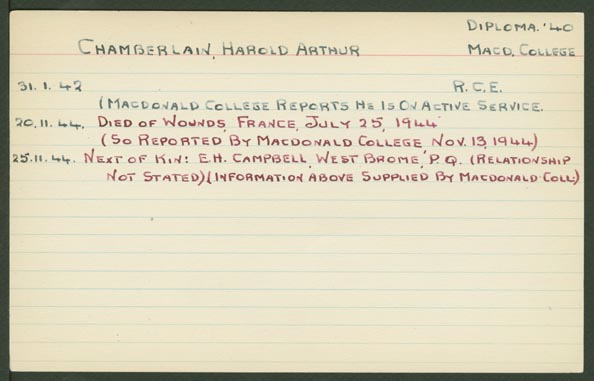 DIPLOMA. '40
CHAMBERLAIN, HAROLD ARTHUR MACD. COLLEGE
31.1.42 R.C.E.
(MACDONALD COLLEGE REPORTS HE IS ON ACTIVE SERVICE.
20.11.44. DIED OF WOUNDS, FRANCE, JULY 25, 1944
(SO REPORTED BY MACDONALD COLLEGE NOV. 13, 1944)
25.11.44. NEXT OF KIN: E.H. CAMPBELL, WEST BROME, P.Q. (RELATIONSHIP
NOT STATED) (INFORMATION ABOVE SUPPLIED BY MACDONALD COLL.)